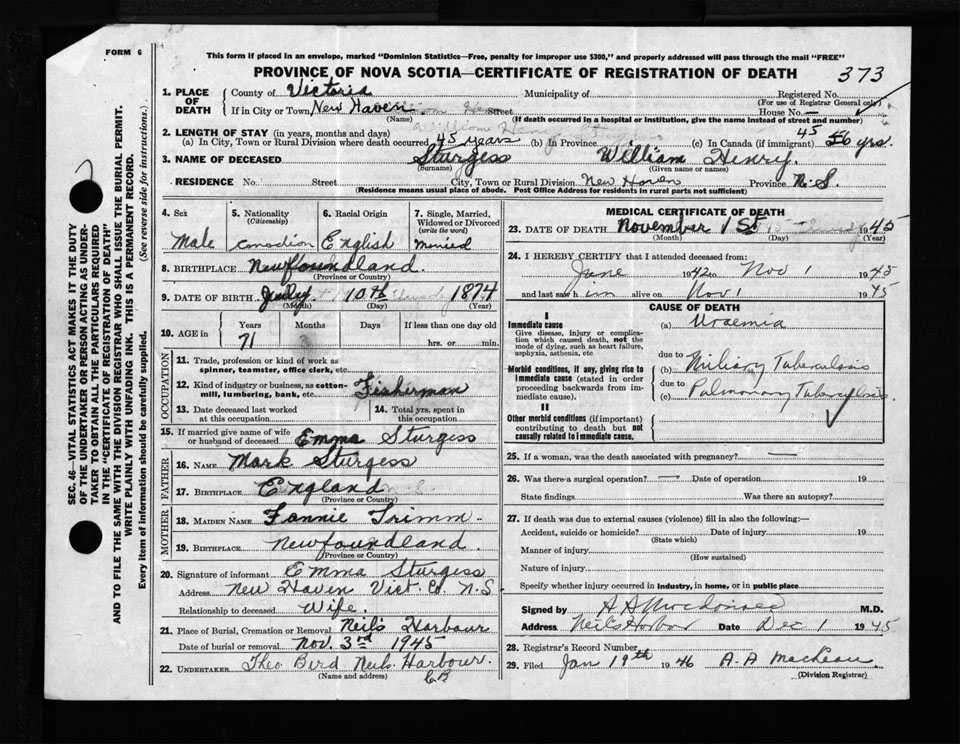 FORM 6
This form if placed in an envelope, marked "Dominion Statistics—Free, penalty for improper use $300," and properly addressed will pass through the mail "FREE"
PROVINCE OF NOVA SCOTIA—CERTIFICATE OF REGISTRATION OF DEATH 373
SEC. 46—VITAL STATISTICS ACT MAKES IT THE DUTY
OF THE UNDERTAKER OR PERSON ACTING AS UNDER-
TAKER TO OBTAIN ALL THE PARTICULARS REQUIRED
IN THE "CERTIFICATE OF REGISTRATION OF DEATH"
AND TO FILE THE SAME WITH THE DIVISION REGISTRAR WHO SHALL ISSUE THE BURIAL PERMIT.
WRITE PLAINLY WITH UNFADING INK. THIS IS A PERMANENT RECORD.
Every item of information should be carefully supplied. (See reverse side for instructions.)
1. PLACE OF DEATH
County of Victoria Municipality of Registered No.
(For use of Registrar General only)
If in City or Town, New Haven Street House No. —
(Name) (If death occurred in a hospital or institution, give the name instead of street and number)
2. LENGTH OF STAY (in years, months and days)
(a) In City, Town or Rural Division where death occurred 45 years (b) In Province (c) In Canada (if immigrant) 45 yrs.
3. NAME OF DECEASED Sturgess William Henry.
(Surname) (Given name or names)
RESIDENCE No. Street City, Town or Rural Division New Haven Province N.S.
(Residence means usual place of abode. Post Office Address for residents in rural parts not sufficient)
4. Sex
Male
5. Nationality
(Citizenship)
Canadian
6. Racial Origin
English
7. Single, Married,
Widowed or Divorced
(write the word)
Married
8. BIRTHPLACE Newfoundland.
(Province or Country)
9. DATE OF BIRTH 10th 1874
(Month) (Day) (Year)
10. AGE in
Years Months Days If less than one day old
71 hrs. or min.
OCCUPATION
11. Trade, profession or kind of work as
spinner, teamster, office clerk, etc.
12. Kind of industry or business, as cotton-
mill, lumbering, bank, etc. Fisherman
13. Date deceased last worked
at this occupation
14. Total yrs. spent in
this occupation
15. If married give name of wife
or husband of deceased Emma Sturgess
FATHER
16. NAME Mark Sturgess
17. BIRTHPLACE England
(Province or Country)
MOTHER
18. MAIDEN NAME Fannie Trimm
19. BIRTHPLACE Newfoundland.
(Province or Country)
20. Signature of informant Emma Sturgess
Address New Haven Vict. Co. N.S.
Relationship to deceased Wife.
21. Place of Burial, Cremation or Removal Neils Harbour
Date of burial or removal Nov. 3rd 1945
22. UNDERTAKER Theo Bird Neils Harbour.
(Name and address) C.B
MEDICAL CERTIFICATE OF DEATH
23. DATE OF DEATH November 1st 1945
(Month) (Day) (Year)
24. I HEREBY CERTIFY that I attended deceased from:
June 1942 to Nov 1 1945
and last saw him alive on Nov 1 1945
CAUSE OF DEATH
I
Immediate cause
Give disease, injury or complica-
tion which caused death, not the
mode of dying, such as heart failure,
asphyxia, asthenia, etc
(a) Uraemia
due to
Morbid conditions, if any, giving rise to
immediate cause (stated in order
proceeding backwards from im-
mediate cause).
(b) Miliary Tuberculosis
due to
(c) Pulmonary Tuberculosis
II
Other morbid conditions (if important)
contributing to death but not
causally related to immediate cause.
25. If a woman, was the death associated with pregnancy? —
26. Was there a surgical operation? — Date of operation 19
State findings Was there an autopsy?
27. If death was due to external causes (violence) fill in also the following:—
Accident, suicide or homicide? Date of injury 19
(State which)
Manner of injury
(How sustained)
Nature of injury
Specify whether injury occurred in industry, in home, or in public place
Signed by A A Macdonald M.D.
Address Neils Harbor Date Dec 1 1945
28. Registrar's Record Number
29. Filed Jan 19th 1946 A. A MacLean
(Division Registrar)